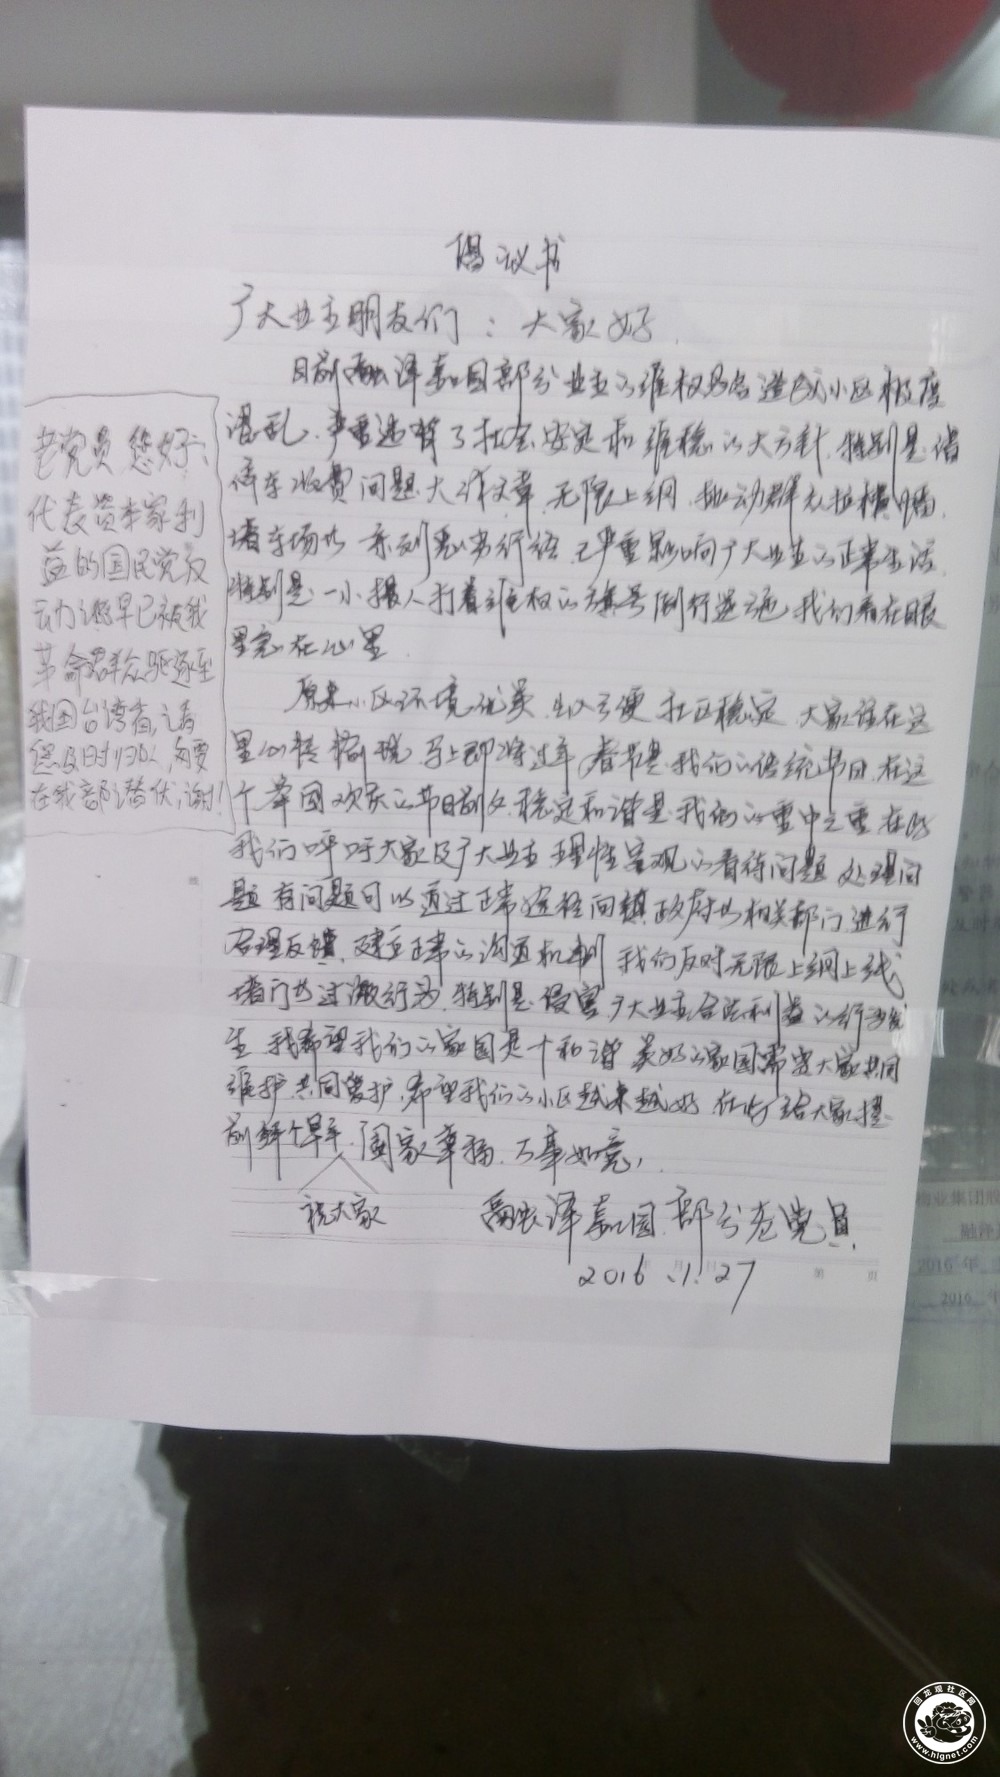 倡议书
广大业主朋友们：大家好
日前融泽嘉园部分业主以维权为名造成小区极度
混乱，严重违背了社会安定和维稳的大方针，特别是借
停车收费问题大作文章，无限上纲，拉横幅，
堵车场等系列行径，已严重影响广大业主的正常生活，
特别是一小撮人打着维权的旗号倒行逆施，我们看在眼
里急在心里
原来小区环境优美，社区稳定，大家住在这
里心情愉悦，马上即将过年，春节是我们的传统节日，在这
个举国欢庆的节日前夕，稳定和谐是我们的重中之重，在此
我们呼吁大家及广大业主理性客观的看待问题，处理问
题，有问题可以通过正常途径向镇政府等相关部门进行
合理反馈，建立正常的沟通机制，我们反对无限上纲上线
堵门等过激行为，特别是侵害广大业主合法利益的行为发
生，我希望我们的家园是个和谐美好的家园，需要大家共同
维护，共同爱护，希望我们的小区越来越好，在此给大家提
前拜个早年，祝大家阖家幸福，万事如意，
融泽嘉园部分老党员
2016.1.27
老党员您好：
代表资本家利
益的国民党反
动派早已被我
革命群众驱逐至
我国台湾省，请
您及时归队，勿要
在我部潜伏，谢！
第 页
2016 年
2016 年
回龙观社区网
www.hlgnet.com